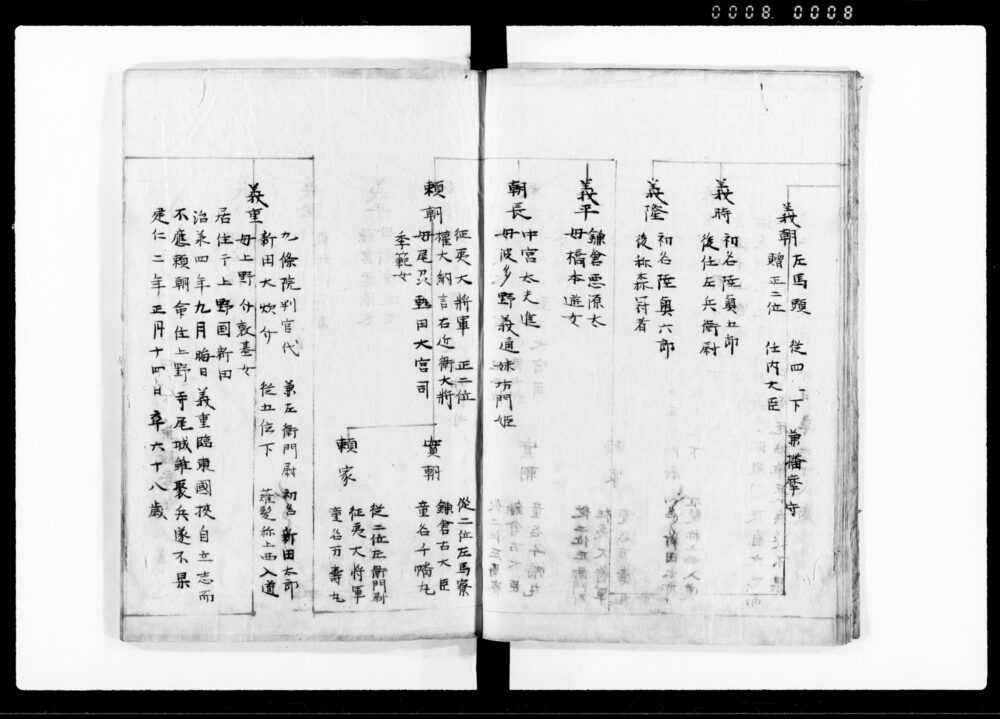 0008. 0008
義朝 左馬頭 從四下 兼播摩守
贈正二位 仕内大臣
義時 初名陸奧五郎
從任左兵衛尉
義隆 初名陸奧六郎
後称森冠者
義平 鎌倉悪源太
母橋本遊女
朝長 中宮大夫進
母波多野義通妹坊門姫
頼朝 征夷大将軍 正二位
權大納言右近衛大将
母尾州熱田大宮司
季範女
實朝 從二位左馬寮
鎌倉右大臣
童名千幡丸
頼家 從二位左衛門尉
征夷大将軍
童名万壽丸
義重 九條院判官代 兼左衛門尉 初名新田太郎
新田大炊介 從五位下 薙髪称上西入道
母上野介敦基女
居住于上野國新田
治承四年九月晦日義重臨東國挾自立志而
不應頼朝命住上野寺尾城雖聚兵遂不果
建仁二年正月十四日卒六十八歳